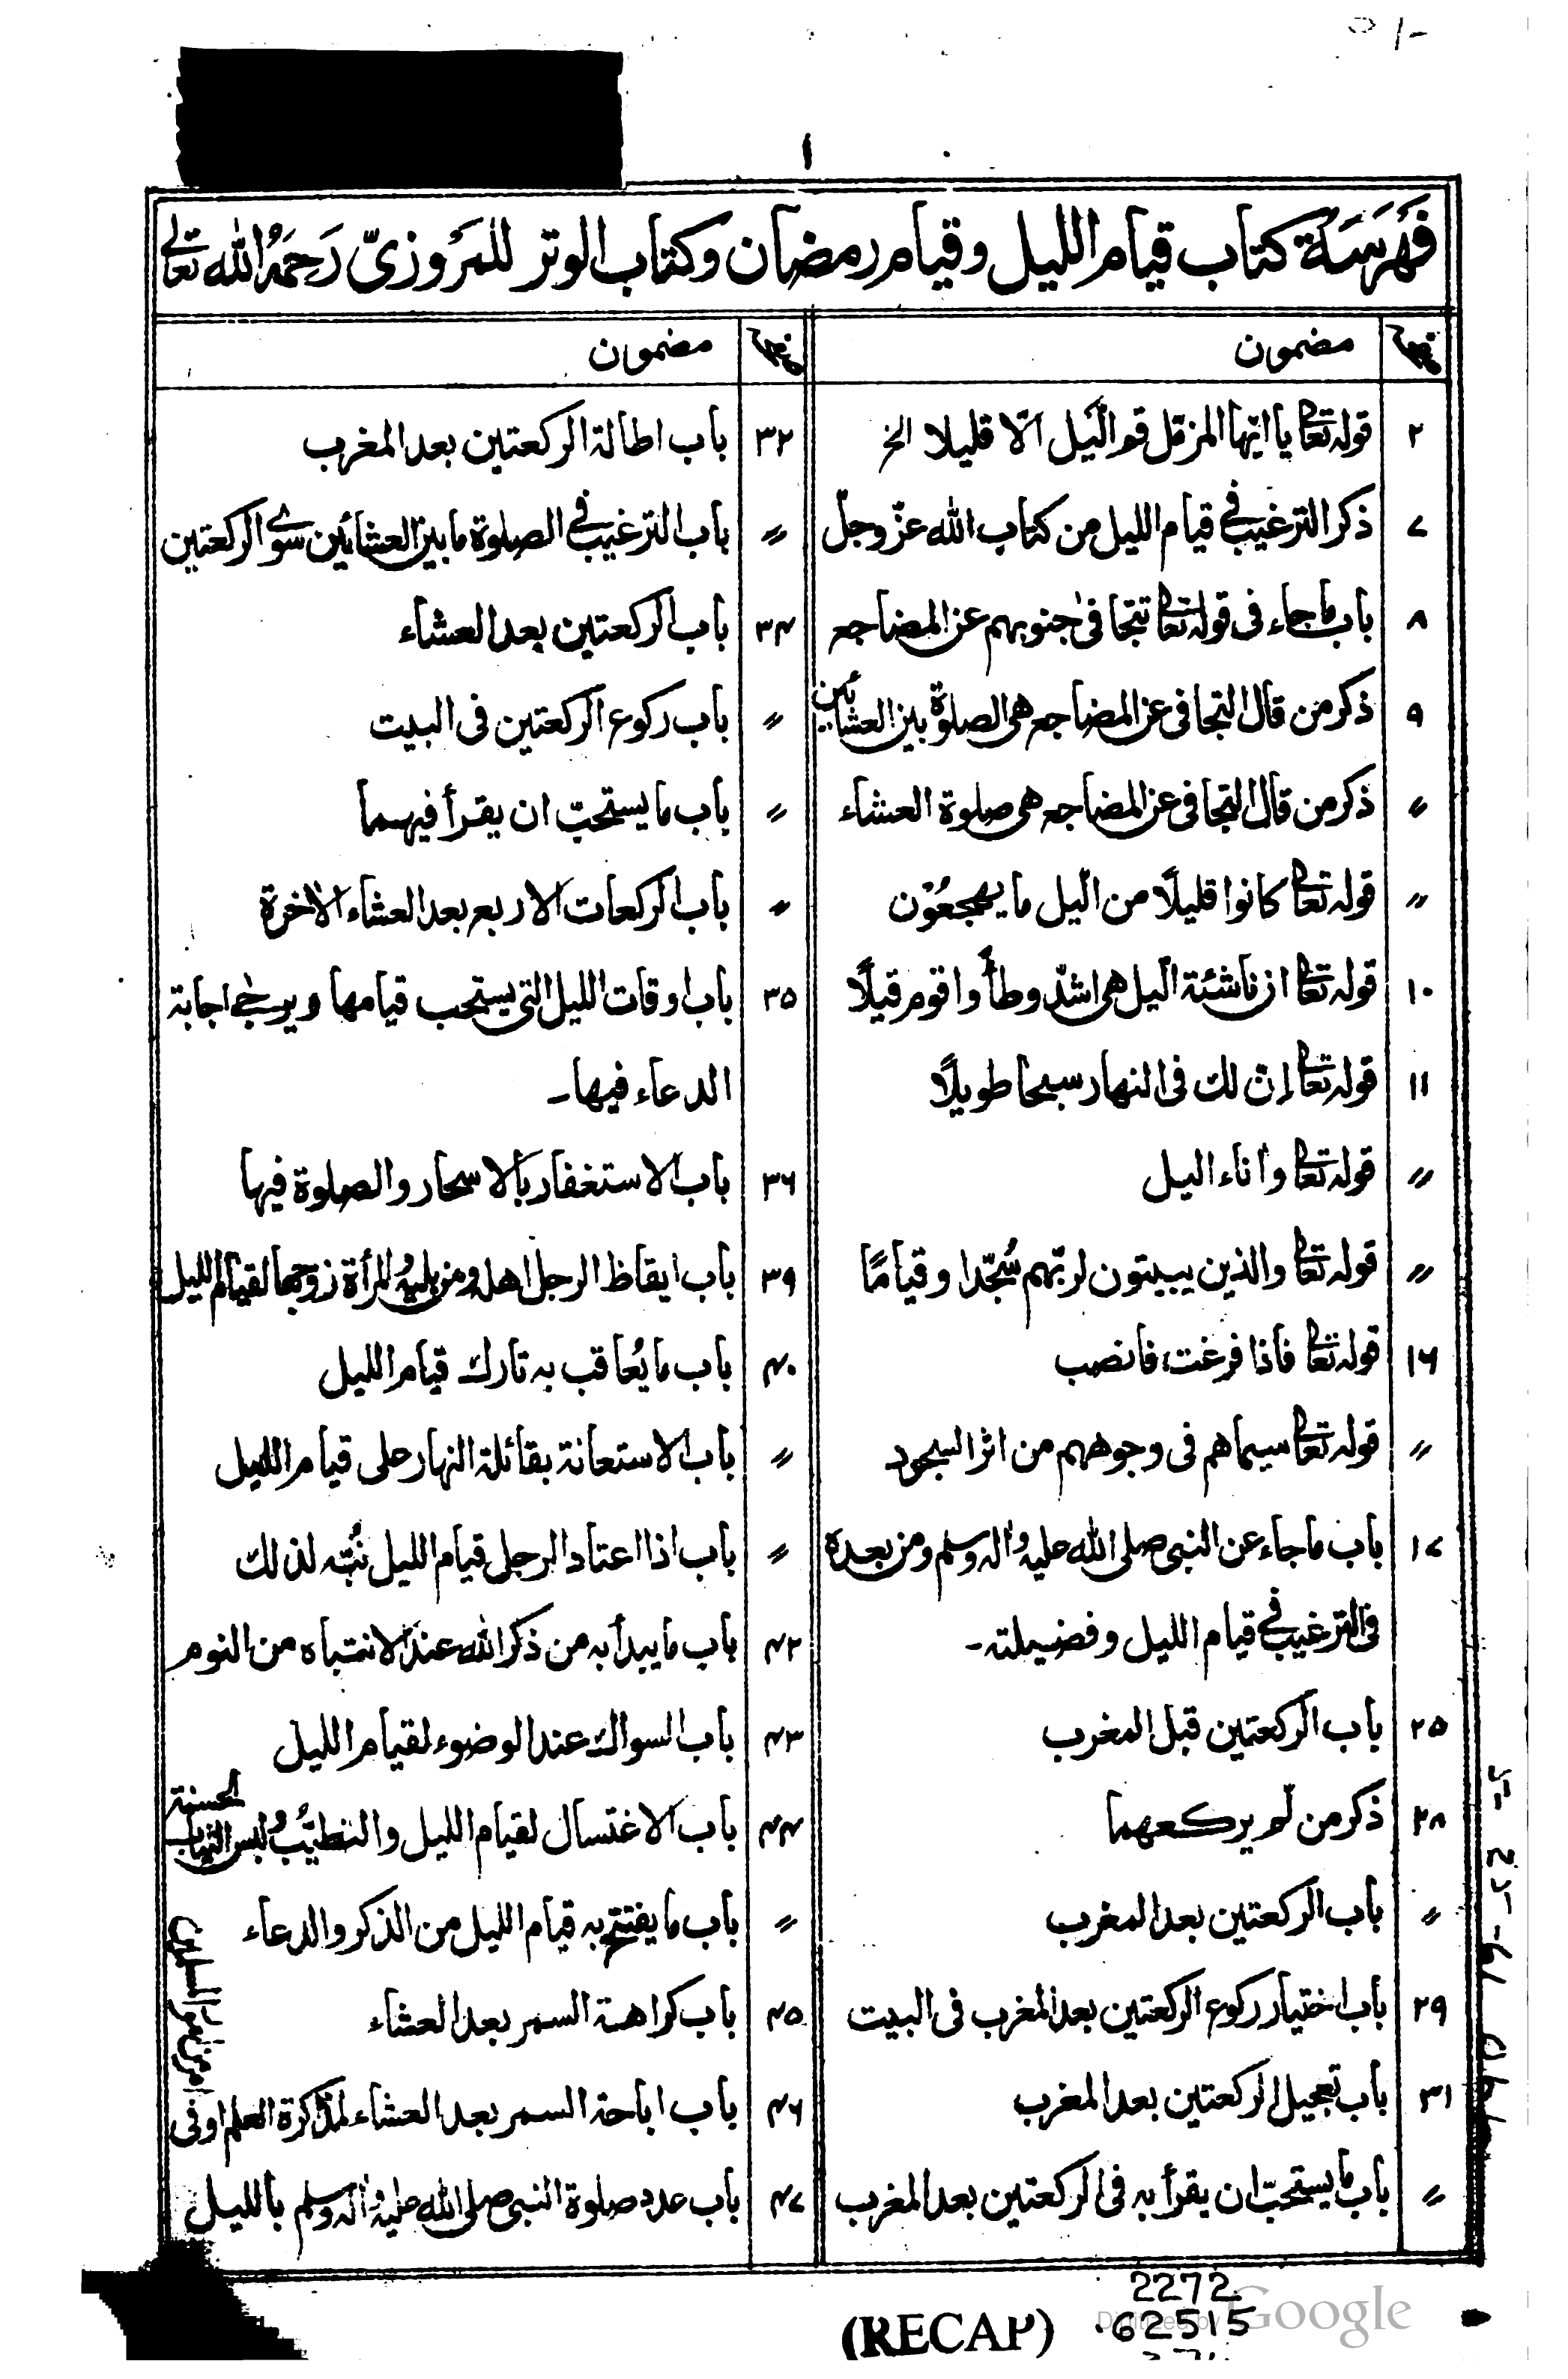 ١
فَهْرَسَةُ كتاب قيام الليل وقيام رمضان وكتاب الوتر للمَرْوزىّ رَحِمَهُ الله تعالى
صفحه مضمون
٢ قوله تعالى يا ايّها المزمّل قم الّيل الّا قليلا الخ
٧ ذكر الترغيب فى قيام الليل من كتاب الله عزّ وجلّ
٨ باب ما جاء فى قوله تعالى تتجافىٰ جنوبهم عن المضاجع
٩ ذكر من قال التجافى عن المضاجع هى الصلوة بين العشائين
〃 ذكر من قال التجافى عن المضاجع هى صلوة العشاء
〃 قوله تعالى كانوا قليلًا من الّيل ما يهجعُوْن
١٠ قوله تعالى ان ناشئة الّيل هى اشدّ وطأً واقوم قيلًا
١١ قوله تعالى إنّ لك فى النهار سبحا طويلًا
〃 قوله تعالى واٰناء اليل
〃 قوله تعالى والذين يبيتون لربّهم سُجّدا وقيامًا
١٦ قوله تعالى فاذا فرغت فانصب
〃 قوله تعالى سيماهم فى وجوههم من اثر السجود
١٧ باب ما جاء عن النبى صلى الله عليه واٰله وسلم ومن بعده
فى الترغيب فى قيام الليل وفضيلته۔
٢٥ باب الركعتين قبل المغرب
٢٨ ذكر من لّم يركعهما
〃 باب الركعتين بعد المغرب
٢٩ باب اختيار ركوع الركعتين بعد المغرب فى البيت
٣١ باب تعجيل الركعتين بعد المغرب
〃 باب ما يستحبّ ان يقرأ به فى الركعتين بعد المغرب
صفحه مضمون
٣٢ باب اطالة الركعتين بعد المغرب
〃 باب الترغيب فى الصلوة ما بين العشائين سوى الركعتين
٣٤ باب الركعتين بعد العشاء
〃 باب ركوع الركعتين فى البيت
〃 باب ما يستحبّ ان يقرأ فيهما
〃 باب الركعات الاربع بعد العشاء الاٰخرة
٣٥ باب اوقات الليل التى يستحب قيامها ويرجى اجابة
الدعاء فيها۔
٣٦ باب الاستغفار بالاسحار والصلوة فيها
٣٩ باب ايقاظ الرجل اهله ومن يليه والمرأة زوجها لقيام الليل
٤٠ باب ما يُعاقب به تارك قيام الليل
〃 باب الاستعانة بقائلة النهار على قيام الليل
〃 باب اذا اعتاد الرجل قيام الليل نُبّه لذلك
٤٢ باب ما يبدأ به من ذكر الله عند الانتباه من النوم
٤٣ باب السواك عند الوضوء لقيام الليل
٤٤ باب الاغتسال لقيام الليل والتطيّب ولبس الثياب الحسنة
〃 باب ما يفتتح به قيام الليل من الذكر والدعاء
٤٥ باب كراهة السمر بعد العشاء
٤٦ باب اباحة السمر بعد العشاء لمذاكرة العلم او فى
امر من امور المسلمين
٤٧ باب عدد صلوة النبى صلى الله عليه واٰله وسلم بالليل
2272
.62515
(RECAP)
Digitized by Google